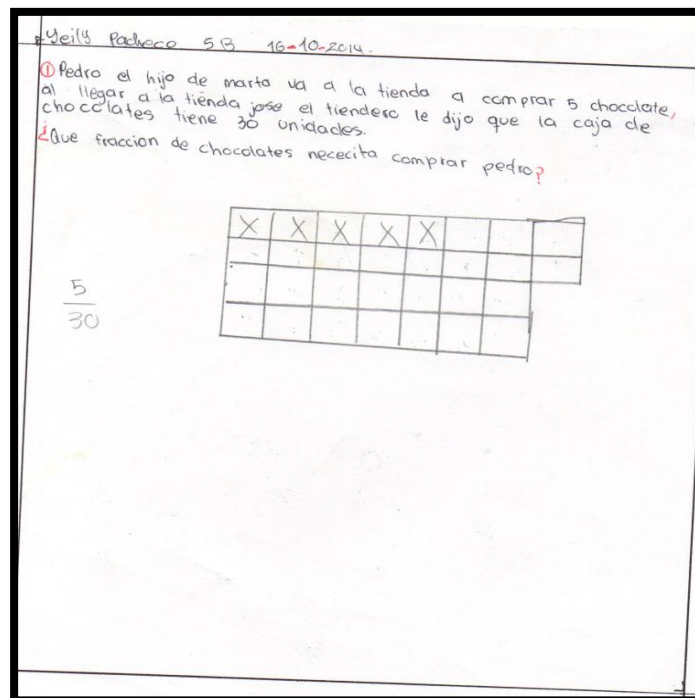 Yeily Pacheco 5B 16-10-2014.
① Pedro el hijo de marta va a la tienda a comprar 5 chocolate,
al llegar a la tienda jose el tiendero le dijo que la caja de
chocolates tiene 30 unidades.
¿Que fraccion de chocolates nececita comprar pedro?
X X X X X
5
30